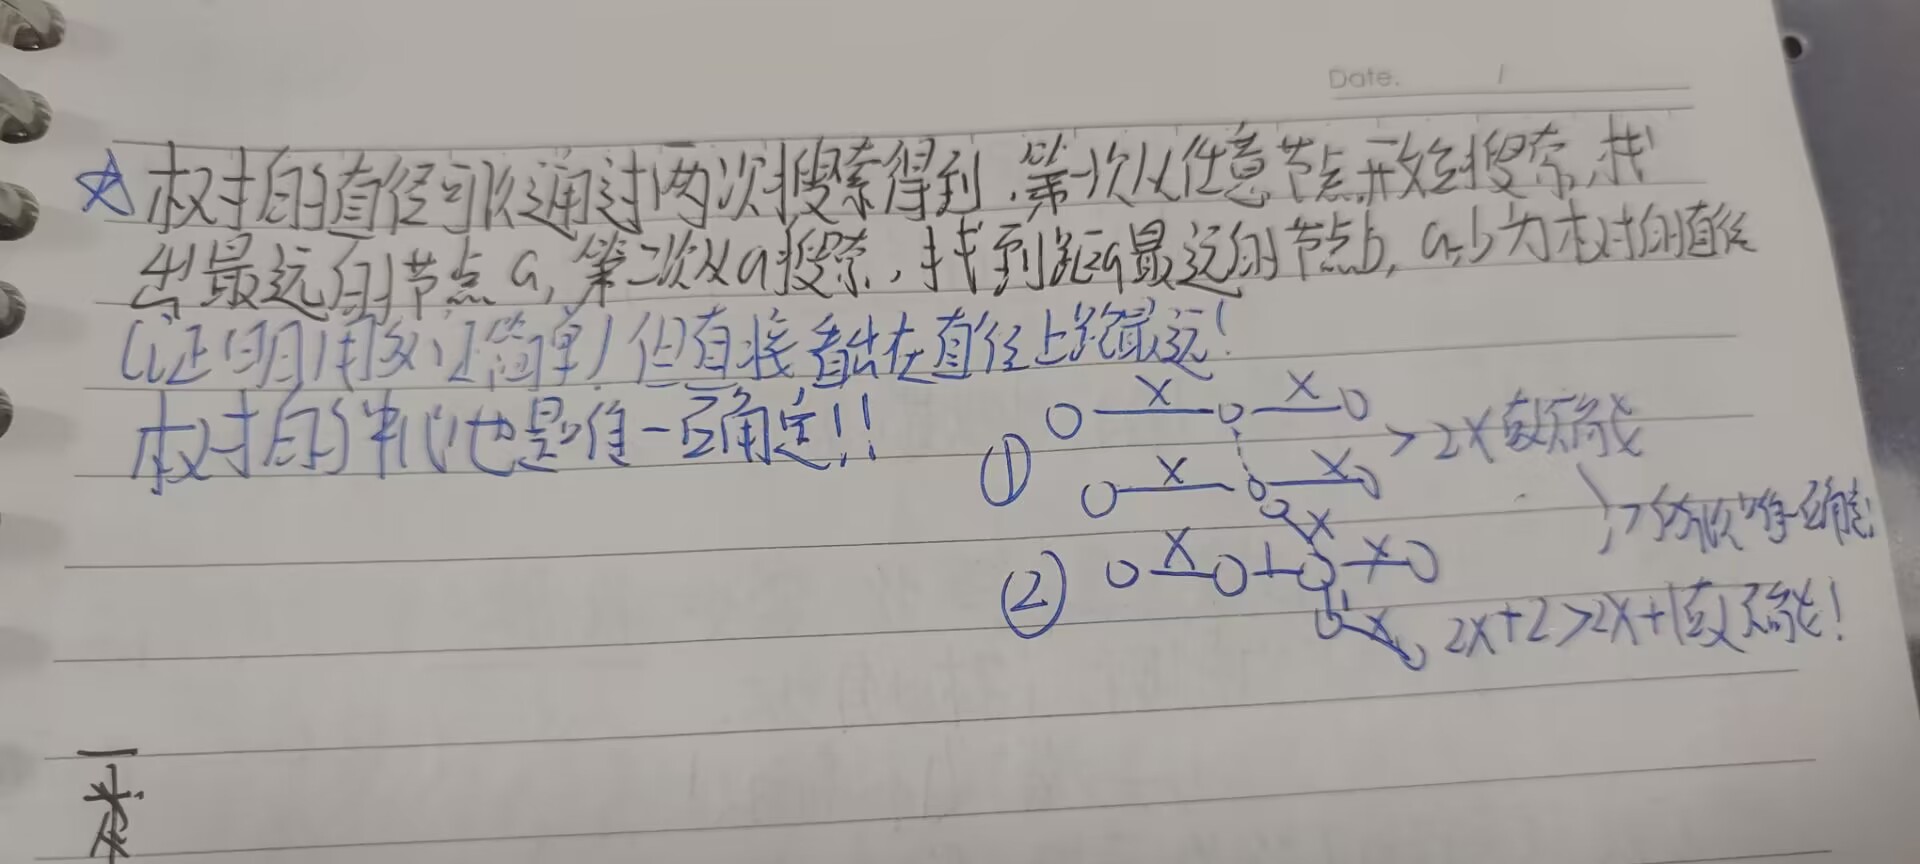 Date. /
☆树的直径可以通过两次搜索得到,第一次从任意节点开始搜索,找
出最远的节点a,第二次从a搜索,找到距a最远的节点b,a,b为树的直径
(证明用反证简单)但直接看出在直径上跑最远!
树的中心也是唯一确定!!
① X X
X X >2X 故不能
X
② X 1 X
1 X 2X+2>2X+1故不能!